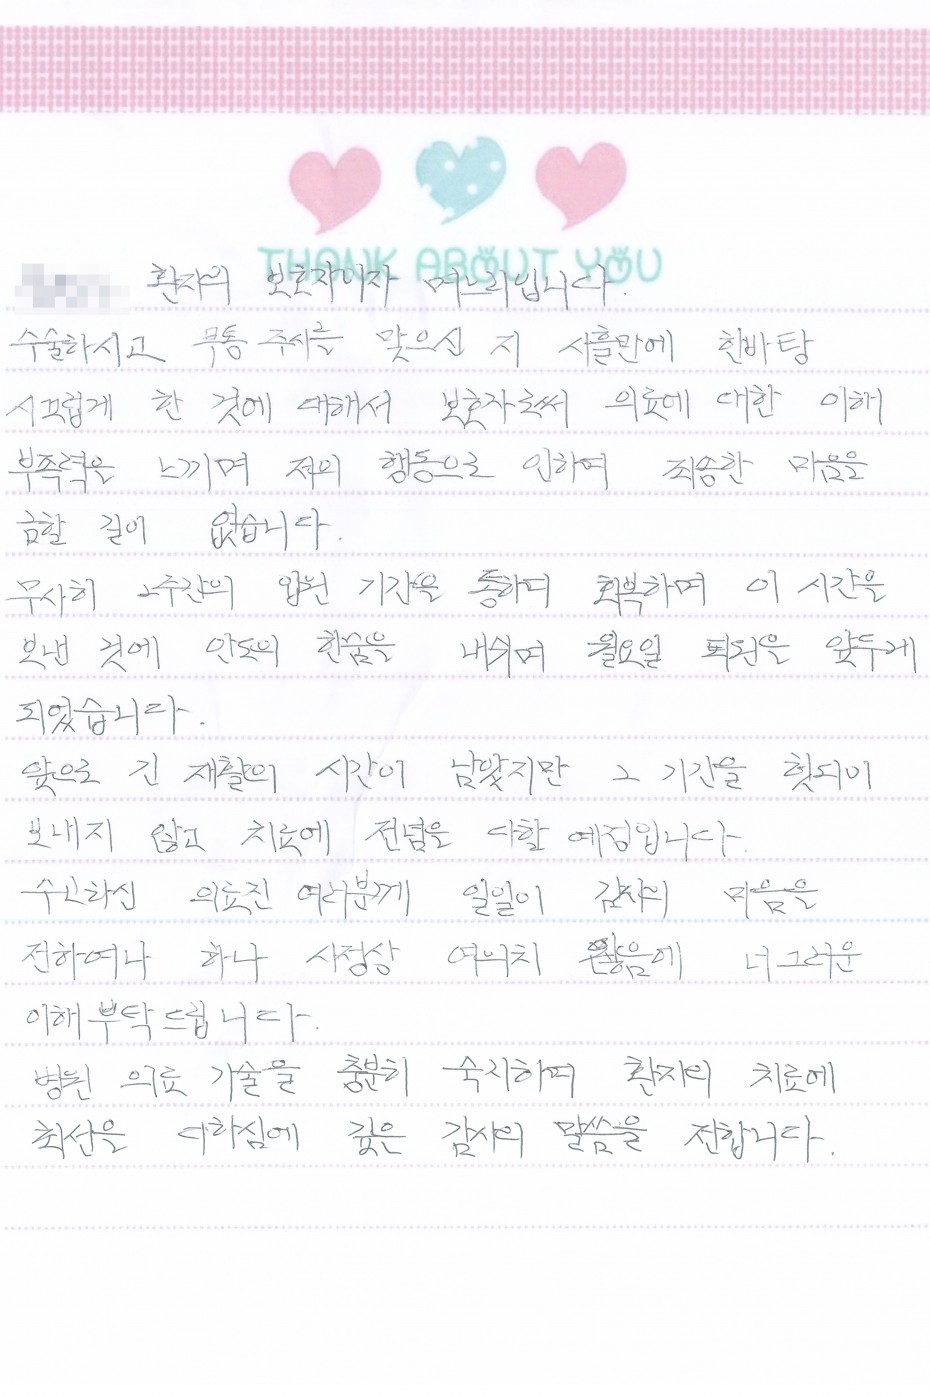 THANK ABOUT YOU
환자의 보호자이자 며느리입니다.
수술하시고 무통 주사를 맞으신 지 사흘만에 한바탕
시끄럽게 한 것에 대해서 보호자로써 의료에 대한 이해
부족력을 느끼며 저의 행동으로 인하여 죄송한 마음을
금할 길이 없습니다.
무사히 2주간의 입원 기간을 통하며 회복하며 이 시간을
보낸 것에 안도의 한숨을 내쉬며 월요일 퇴원을 앞두게
되었습니다.
앞으로 긴 재활의 시간이 남았지만 그 기간을 헛되이
보내지 않고 치료에 전념을 다할 예정입니다.
수고하신 의료진 여러분께 일일이 감사의 마음을
전하여나 하나 사정상 여의치 않음에 너그러운
이해 부탁드립니다.
병원 의료 기술을 충분히 숙지하며 환자의 치료에
최선을 다하심에 깊은 감사의 말씀을 전합니다.